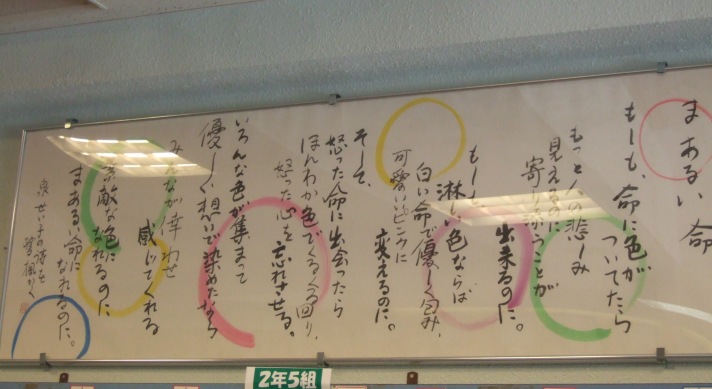 まあるい命
もしも、命に色が
ついてたら
もっと人の悲しみ
見えるのに
寄り添うことが
出来るのに。
もしも
淋しい色ならば
白い命で優しく包み、
可愛いピンクに
変えるのに。
そして、
怒った命に出会ったら
ほんわか色でくるくる回り、
怒った心を
忘れさせる。
いろんな色が集まって
優しい想いで染めたなら
みんなが倖わせ
感じてくれる
素敵な色に
なれるのに
まあるい命に
なれるのに。
泉せい子の詩を
2年5組